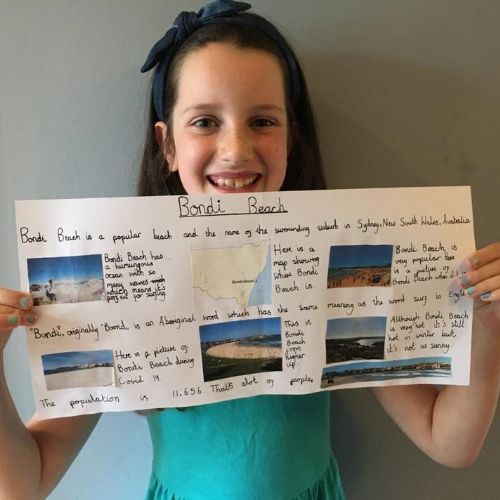 Bondi Beach
Bondi Beach is a popular beach and the name of the surrounding suburb in Sydney, New South Wales, Australia
Bondi Beach has
a humungous
ocean with so
many waves
which means it's
perfect for surfing
Here is a
map showing
where Bondi
Beach is
Bondi Beach
Bondi Beach is
very popular here
is a picture of
Bondi Beach when it's
"Bondi", originally "Boondi", is an Aboriginal word which has the same meaning as the word surf in English
Here is a picture of
Bondi Beach during
Covid 19.
This is
Bondi
Beach
from
higher
up.
Although Bondi Beach
is very hot it's still
hot in winter but
it's not as sunny.
The population is 11,656. That's alot of people.